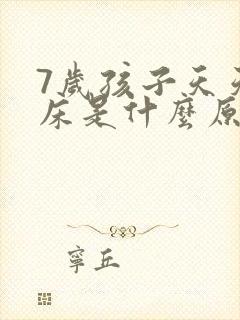 7歲孩子天天
床是什麼原
寧丘